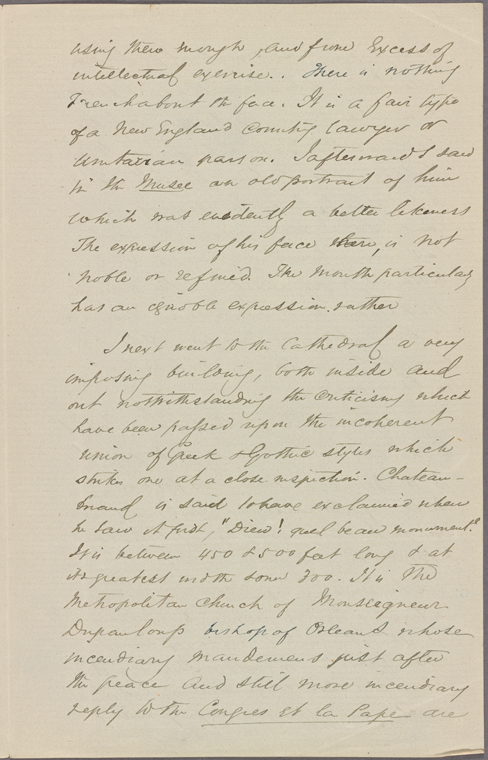 using them much, and from Excess of
intellectual exercise.. There is nothing
French about the face. It is a fair type
of a New England country lawyer or
Unitarian parson. I afterwards saw
in the Musee an old portrait of him
which was evidently a better likeness
The expression of his face here, is not
noble or refined. The mouth particularly
has an ignoble expression. rather
I next went to the Cathedral a very
imposing building, both inside and
out notwithstanding the criticisms which
have been passed upon the incoherent
union of Greek & Gothic styles which
strikes one at a close inspection. Chateau-
briand is said to have exclaimed when
he saw it first, "Dieu! quel beau monument."
It is between 450 & 500 feet long & at
its greatest width some 200. It is The
Metropolitan Church of Monseigneur
Dupanloup bishop of Orleans whose
incendiary mandemens just after
the peace and still more incendiary
reply to the Congres et la Pape are